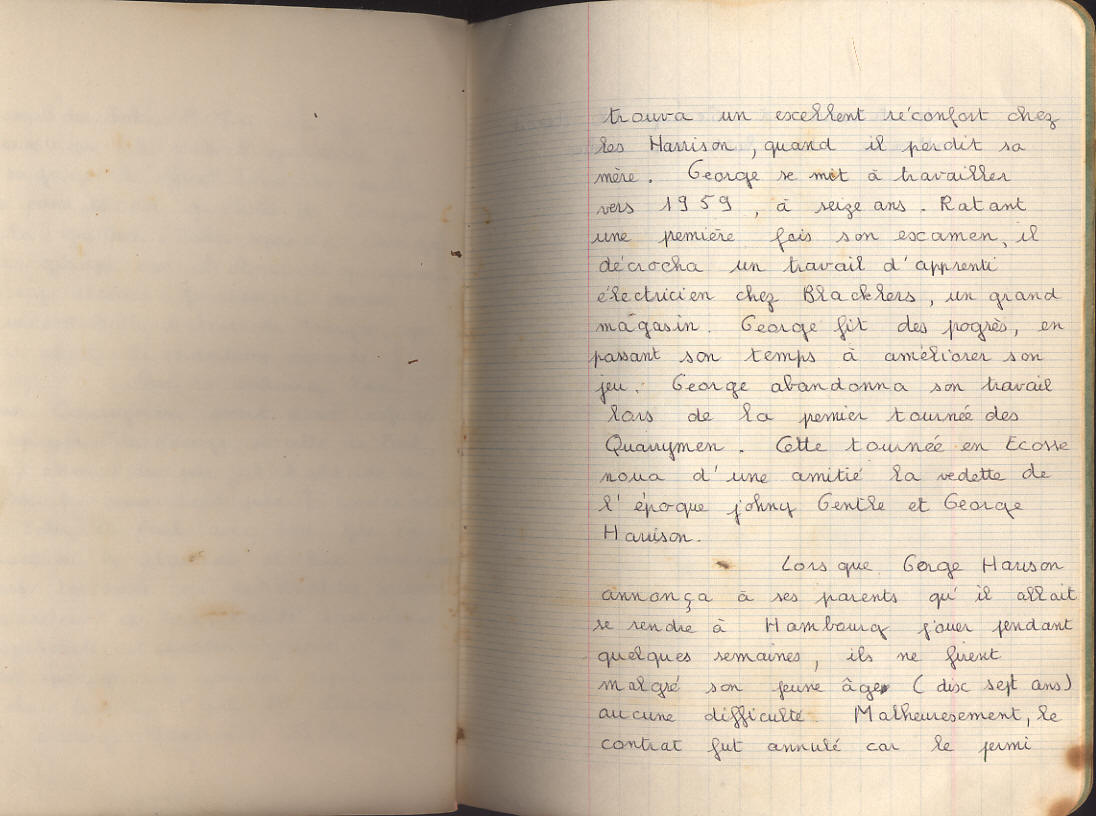 trouva un excellent réconfort chez
les Harrison, quand il perdit sa
mère. George se mit à travailler
vers 1959, à seize ans. Ratant
une première fois son examen, il
décrocha un travail d'apprenti
électricien chez Blacklers, un grand
magasin. George fit des pogrès, en
passant son temps à améliorer son
jeu. George abandonna son travail
lors de la pemier tournée des
Quarrymen. Cette tournée en Ecosse
noua d'une amitié la vedette de
l'époque johny Gentle et George
Harrison.
Lorsque Gorge Harison
annonça à ses parents qu'il allait
se rendre à Hambourg jouer pendant
quelques semaines, ils ne firent
malgré son jeune âge (disc sept ans)
aucune difficulté. Malheuresement, le
contrat fut annulé car le permi